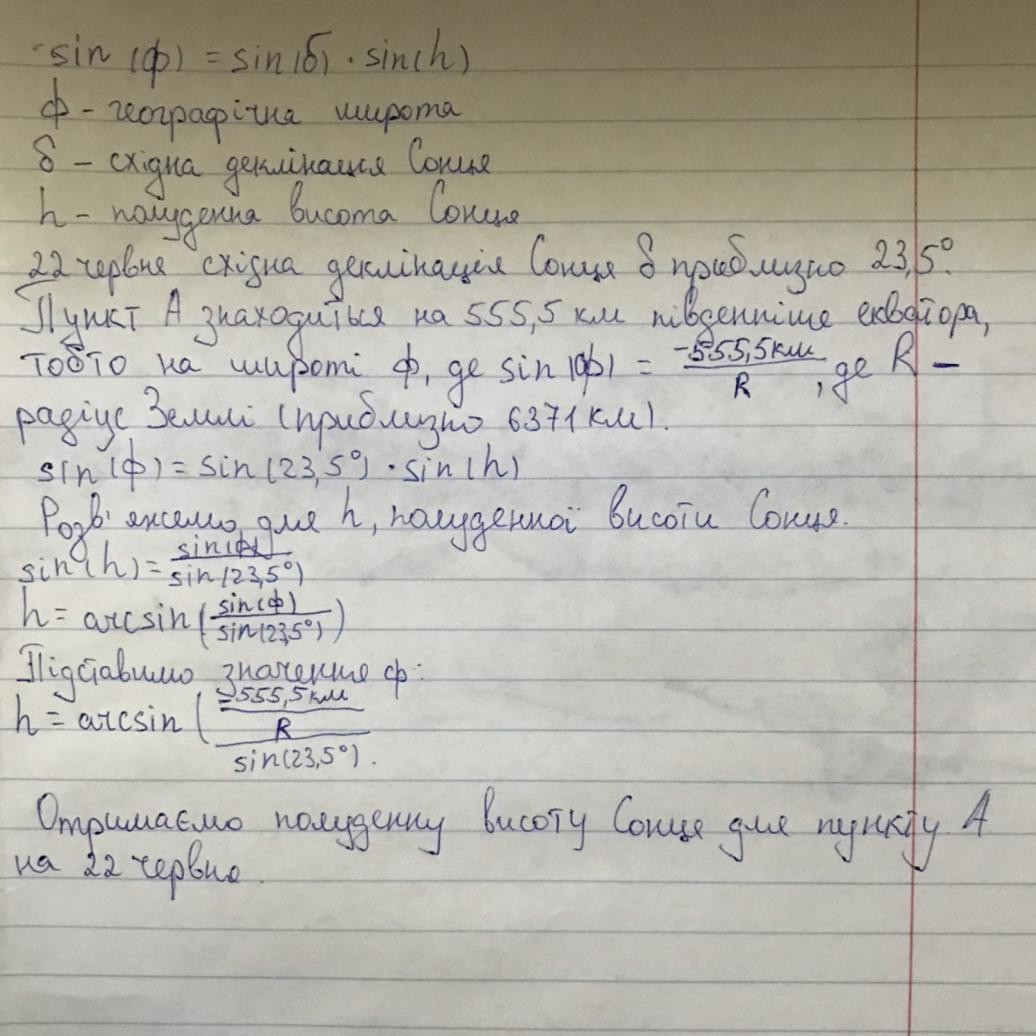 sin (ф) = sin(δ) · sin(h)
ф - географічна широта
δ - східна деклінація Сонця
h - полуденна висота Сонця
22 червня східна деклінація Сонця δ приблизно 23,5°.
Пункт А знаходиться на 555,5 км південніше екватора,
тобто на широті ф, де sin(ф) = -555,5км / R, де R -
радіус Землі (приблизно 6371 км).
sin(ф) = sin(23,5°) · sin(h)
Розв'яжемо для h, полуденної висоти Сонця.
sin(h) = sin(ф) / sin(23,5°)
h = arcsin(sin(ф) / sin(23,5°))
Підставимо значення ф:
h = arcsin( -555,5км / R / sin(23,5°).
Отримаємо полуденну висоту Сонця для пункту А
на 22 червня.